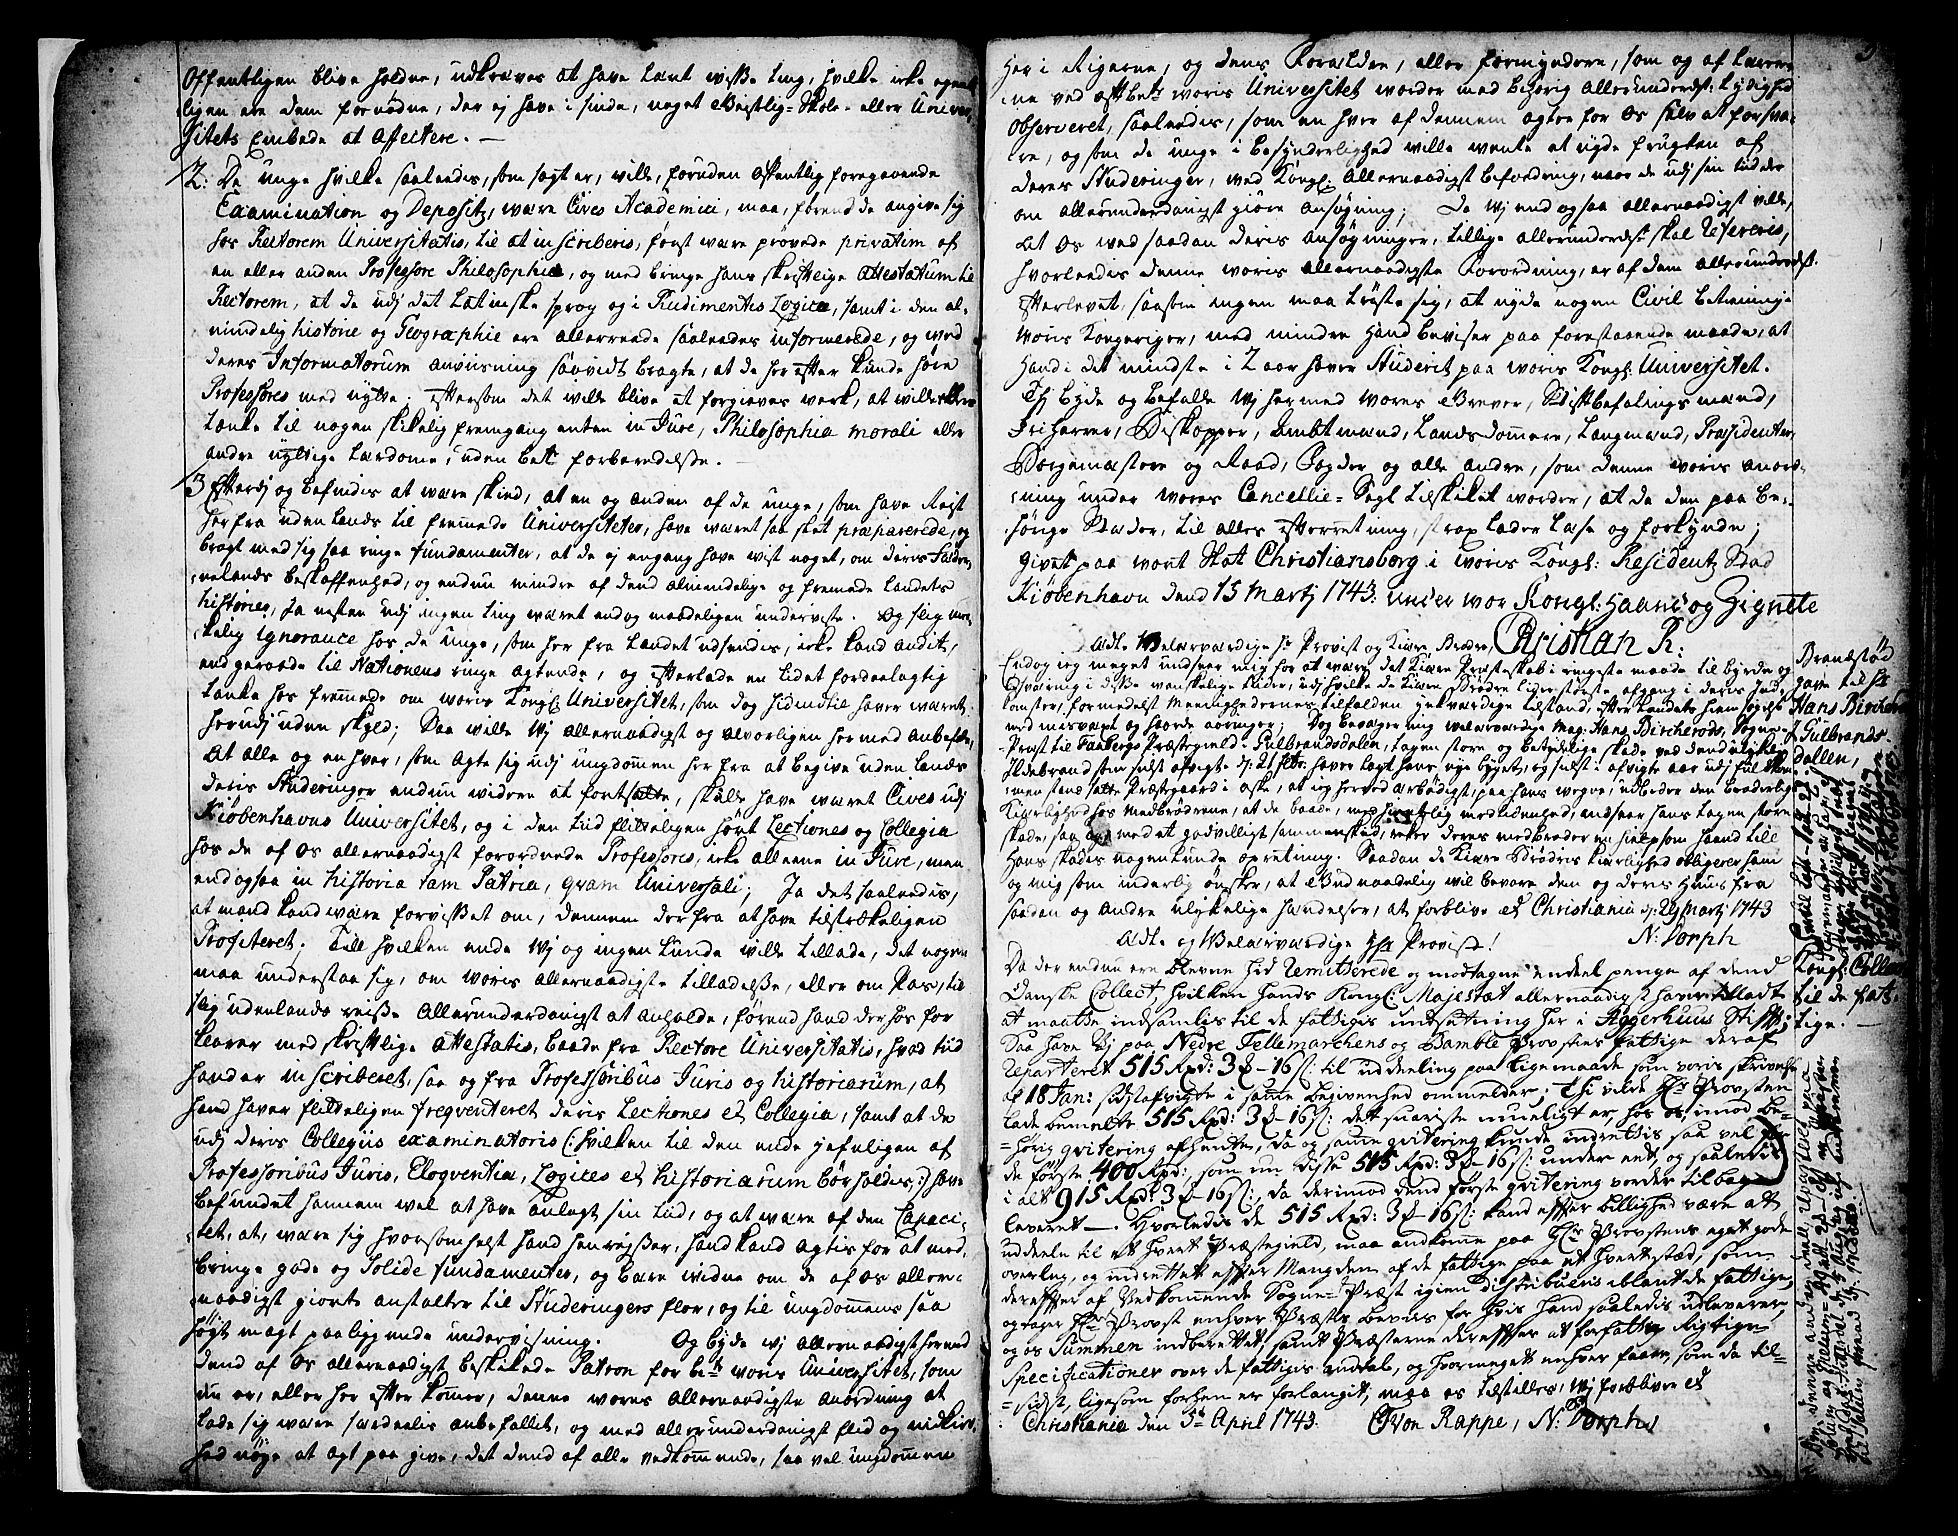 Offentligen blive holdne, udkræves at have lært visse ting, hvilke icke egent-
ligen ere dem fornødne, der ej have i sinde, noget Geistlig- Skole- eller Univer-
sitets Embede at affectere. —
2: De unge hvilke saaledis, som sagt er, ville, foruden offentlig foregaaende
Examination og Depositz, være Cives Academici, maa, førend de angive sig
hos Rectorem Universitatis, til at inscriberis, først være prøvede privatim af
en eller anden Professore Philosophiæ, og med bringe hans skriftlige attestatum til
Rectorem, at de udj det Latinske sprog og i Rudimentis Logicæ, samt i den al-
mindelig historie og Geographie ere allerreede saaleedes informerede, og ved
deres Informatorum anviisning saavidt bragte, at de her efter kunde høre
Professores med nytte; Eftersom det vilde blive et forgieves verk, at ville
tænke til nogen skikelig fremgang enten in Jure, Philosophia morali eller
andre nyttige Lærdome, uden bete forberedelse. —
3 Efterdj og befindis at være skeed, at en og anden af de unge, som have Reist
her fra uden Lands til fremmede Universiteter, have været saa slet præparerede, og
bragt med sig saa ringe fundamenter, at de ej engang have vist noget, om deris Fæder-
nelands beskaffenhed, og endnu mindre af dend almindelige og fremmede Landets
histories, Ja nesten udj ingen ting været endog maadeligen underviste. Og slig mer-
kelig ignorance hos de unge, som her fra Landet udsendis, icke kand andet,
end geraade til Nationens ringe agtende, og efterlade en lidet fordeelagtig
tanke hos fremmede om woris Kongl: Universitet, som dog hidindtil haver været
herudj uden skyld; Saa ville Wj allernaadigst og alvorligen hermed anbefale,
at alle og enhver, som agte sig udj ungdommen her fra at begive uden Lands
deris Studeringer endnu widere at fortsætte, skulle have været Cives udj
Kiøbenhavns Universitet, og i den tiid flitteligen hørt Lectiones og Collegia
hos de af os allernaadigst forordnede Professores, icke alleene in Jure, men
endogsaa in historia tam Patria, qvam Universali; Ja det saaleedis,
at mand kand være forvisset om, dennem derfra at have tilstrekeligen
Profiteret; Till hvilken ende Wj og ingen lunde ville tillade, det nogen
maa understaa sig, om woris allernaadigste tilladelse, eller om Pas, til
slig udenlands reise allerunderdanigst at anholde, førend hand der hos for-
klarer med skriftlige attestatis, baade fra Rectore Universitatis, hvad tiid
hand er inscriberet, saa og fra Professoribus Juris og historiarum, at
hand haver flitteligen freqventeret deris Lectiones et Collegia, samt at de
udj deris Collegiis examinatoriis (: hvilken til den ende jefnligen af
Professoribus Juris, Eloqventiæ, Logices et historiarum bør holdis:) have
befundet hannem vel at have anlagt sin tiid, og at være af den Capaci-
tet, at, være sig hvorsomhelst hand henreyser, hand kand agtis for at med-
bringe gode og Solide fundamenter, og bære vidne om de af os aller-
naadigst giorte anstalter til Studeringers flor, og til ungdommens saa
høyt magt paaliggende undervisning. Og byde wj allernaadigst herved
dend af os allernaadigst beskikede Patron for bete woris Universitet, som
nu er, eller her efter kommer, denne wores allernaadigste anordning at
lade sig være særdeelis anbefallet, og med allerunderdanigst fliid og nidkier-
hed nøye at agt paa give, det dend af alle vedkommende, saa vel ungdommen
her i Rigerne, og deris Forældre, eller formyndere, som og af Lærer-
ne ved ofte bete woris Universitet worder med behørig allerunderdst: Lydighed
observeret, saaleedis, som en hver af dennem agter for os selv at forsva-
re, og som de unge i besynderlighed wille wente at nyde frugten af
deres Studeringer, med Kongl: allernaadigst befordring, naar de udj sin tiid der
om allerunderdanigst giøre ansøgning; Da Wj end ogsaa allernaadigst ville,
at os wed saadan deris ansøgninger, tillige allerunderdst: skal Refereris,
hvorleedis denne woris allernaadigste Forordning, er af dem allerunderdst:
efterlevet, saasom ingen maa trøste sig, at nyde nogen Civil betiening i
woris Kongeriger, med mindre hand beviser paa forestaaende maade, at
hand i det mindste i 2 aar haver Studerit paa woris Kongl: Universitet.
Thj byde og befale Wj hermed wores Grever, Stiftbefalings mænd,
Friherrer, Biskopper, Ambtmænd, Landsdommere, Laugmænd, Præsidenter,
Borgemæstere og Raad, Fogder, og alle andre, som denne woris anord-
ning under wores Cancellie- Segl tilskiket worder, at de den paa be-
hørige stæder, til alles efterretning, strax lader læse og forkynde;
Givet paa wort Slot Christiansborg i woris Kongl: Residentz Stad
Kiøbenhavn dend 15 Martj 1743. under wor Kongl: Haand og Signete
Christian R:
Adle Welærværdige Hr Provist og Kiære Brødre,
Endog ieg meget undseer mig for at være det kiære Præsteskab i ringeste maade til byrde og
besværing i disse wanskelige tiider, udj hvilke de kiære Brødre lider største afgang i deris Ind-
komster, formedelst Meenighedernes tilfelden ynkværdige tilstand, efter Landets hiemsøgelse
med misvæxt og haarde aaringer; Dog bevæger mig welærværdige Mag: Hans Bircherods, Sogne-
Præst til Faabergs Præstegield i Gulbrandsdalen, tagen store og betydelige skade ved dend ulykelige
Ildebrand som sidst afvigte d: 21 feb: haver lagt hans nye byget, og sidst i afvigte aar udj fuldkom-
men stand satte Præstegaard i aske, at ieg herved ærbødigst, paa hans wegne, udbeder den broderlige
Kierlighed hos medbrødrene, at de baade, med hiertelig medlidenhed, andseer hans tagen store
skade, saa og med et godvilligt sammenskud, reker deres medbroder en hielpsom haand till
hans skades nogenlunde opretning. Saadan de kiære Brødris kierlighed obligerer ham
og mig som inderlig ønsker, at Gud naadelig vil bevare dem og deris Huus fra
saadan og andre ulykelige hændelser, at forblive etc Christiania d: 29 Martj 1743
N: Dorph
Adle og Welærværdige Hr Provist!
Da der endnu ere blevne hid Remitterede og modtagne endeel penge af dend
Danske Collect, hvilken hands Kongl: Majestæt allernaadigst haver tilladt
at maatte indsamlis til de fattigis undsætning her i Aggerhuus Stift;
Saa have Wj paa Nedre Tellemarchens og Bamble Provsties fattige deraf
Reparteret 515 Rxd: 3 ß- 16 ſſ: til uddeeling paa lige maade som voris skrivelse
af 18 Jan: sidstafvigte i samme begivenhed ommelder; Thi vilde Hr Provsten
lade bemelte 515 Rxd: 3 ß- 16 ſſ: dett snariste mueligt er, hos os imod be-
hørig qvitering afhente, da og samme qvitering kunde indrettis saa vel for
de første 400 Rxd:, som nu disse 515 Rxd: 3 ß- 16 ſſ: under eet, og saaledis
i alt 915 Rxd: 3 ß- 16 ſſ:, da derimod dend første qvitering vorder tilbage
leveret —. Hvorledis de 515 Rxd: 3 ß- 16 ſſ: kand efter billighed være att
uddeele til et hvert Præstegield, maa ankomme paa Hr Provstens eget gode
overleg, og indrettet effter Mængden af de fattige paa et hvert stæd, som
dereffter af Vedkommende Sogne-Præst igien distribueris iblant de fattige,
og tager Hr Provst enhver Præstes beviis for hvis hand saaledis udleverer,
og os Summen indberettet, samt Præsterne dereffter at forfatte Rigtige
Specificationer over de fattigis andeel, og hvormeget enhver faaer, som da til-
sidst, ligesom forhen er forlangt, maa os tilstilles, Wj forblive etc
Christiania den 5te April 1743. C: Von Rappe, N: Dorph
Brandstød
gave til Hr
Hans Bircherod
i Gulbrands-
dallen,
Kongl: Collect
til de fat-
tige. —